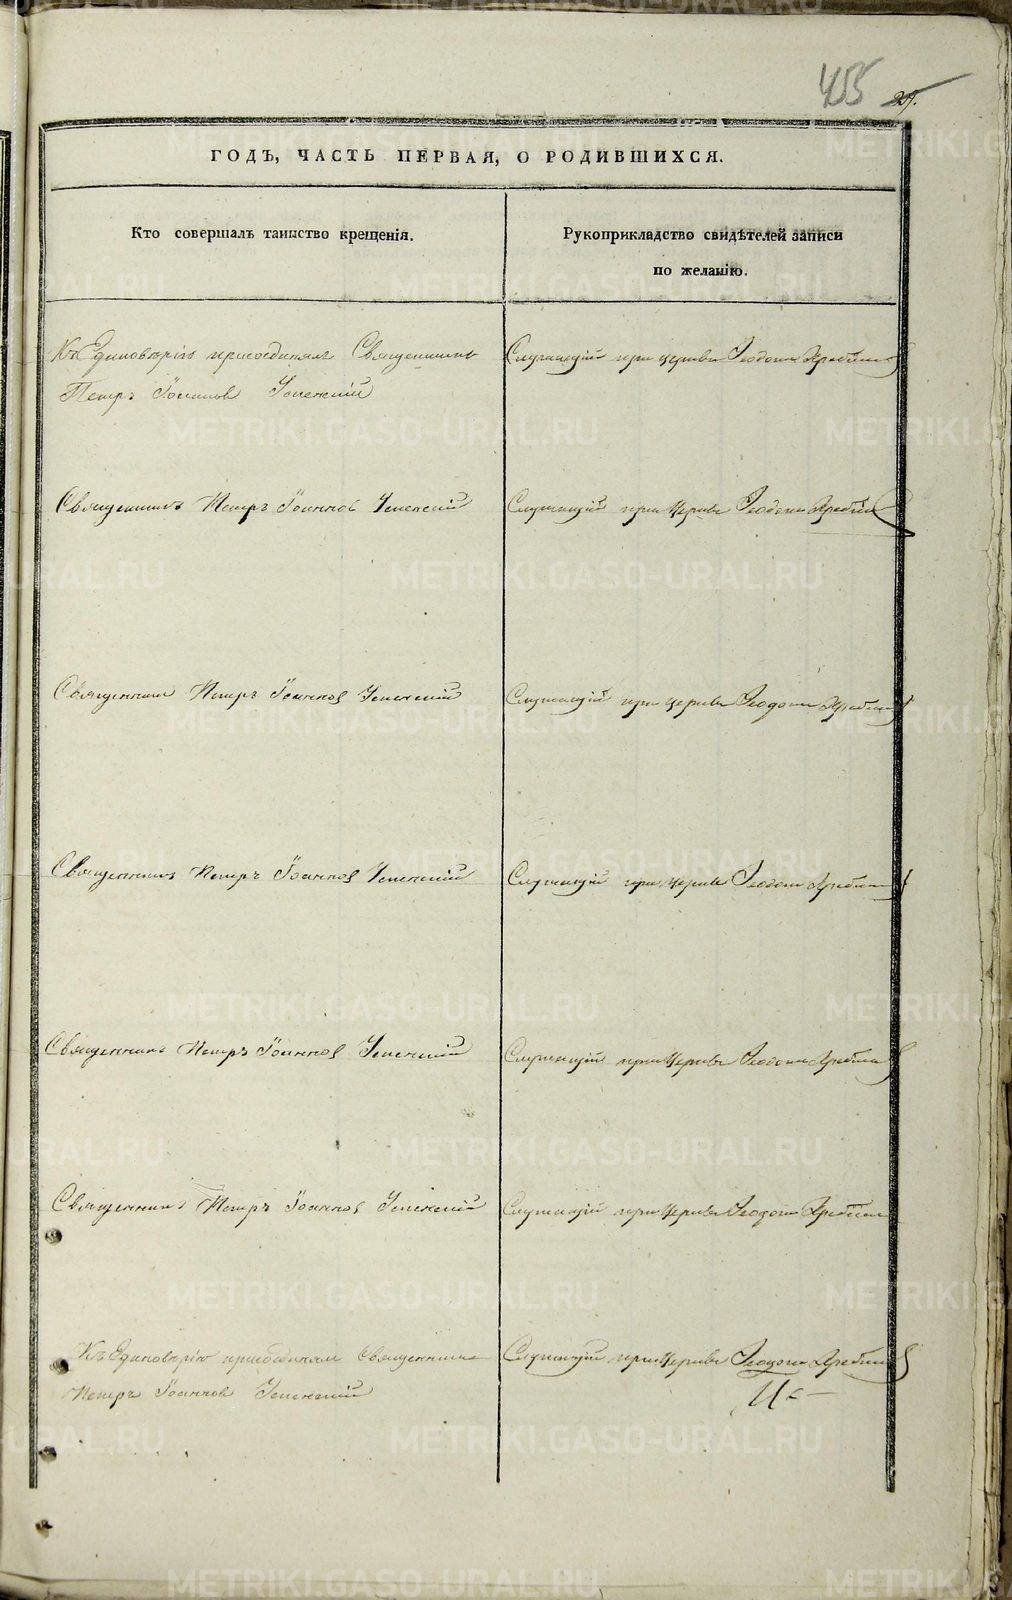 455 29.
ГОДЪ, ЧАСТЬ ПЕРВАЯ, О РОДИВШИХСЯ.
Кто совершалъ таинство крещенія.
Рукоприкладство свидѣтелей записи
по желанію.
Къ Единовѣрію присоединялъ Священникъ
Петръ Іоанновъ Успенскій
Служащій при церкви Ѳеодоръ
Священникъ Петръ Іоанновъ Успенскій
Служащій при Церкви Ѳеодоръ
Священникъ Петръ Іоанновъ Успенскій
Служащій при церкви Ѳеодоръ
Священникъ Петръ Іоанновъ Успенскій
Служащій при церкви Ѳеодоръ
Священникъ Петръ Іоанновъ Успенскій
Служащій при Церкви Ѳеодоръ
Священникъ Петръ Іоанновъ Успенскій
Служащій при Церкви Ѳеодоръ
Къ Единовѣрію Священникъ
Петръ Іоанновъ Успенскій
Служащій при Церкви Ѳеодоръ
METRIKI.GASO-URAL.RU